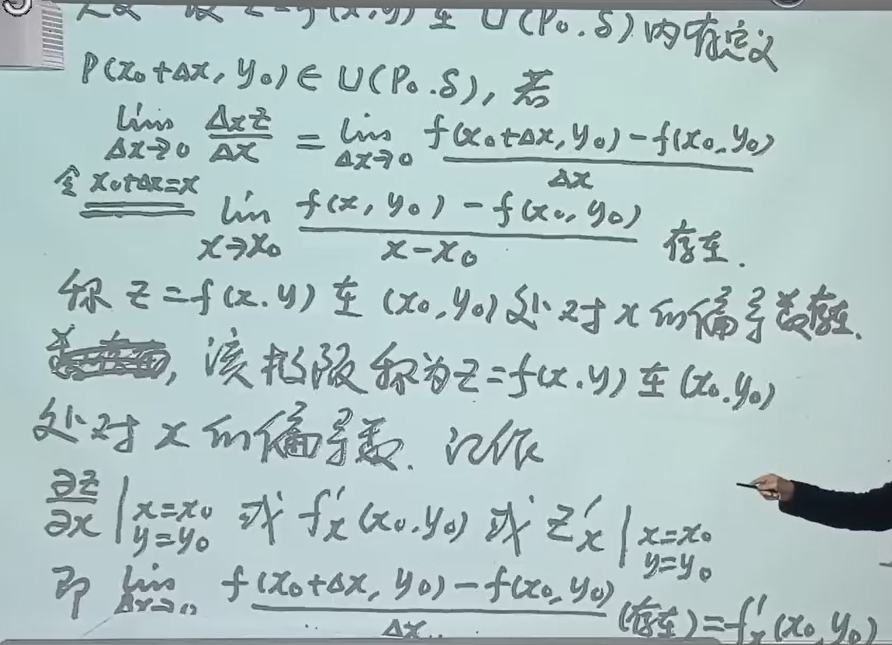 设 z=f(x,y) 在 U(P₀.δ) 内有定义
P(x₀+Δx, y₀)∈U(P₀.δ), 若
lim_{Δx→0} Δxz/Δx = lim_{Δx→0} (f(x₀+Δx, y₀)-f(x₀,y₀))/Δx
令 x₀+Δx=x lim_{x→x₀} (f(x, y₀)-f(x₀, y₀))/(x-x₀) 存在.
称 z=f(x.y) 在 (x₀,y₀) 处对 x 的偏导数存在.
, 该极限称为 z=f(x.y) 在 (x₀.y₀)
处对 x 的偏导数. 记作
∂z/∂x |x=x₀ y=y₀ 或 f'ₓ(x₀.y₀) 或 z'ₓ |x=x₀ y=y₀
即 lim_{Δx→0} (f(x₀+Δx, y₀)-f(x₀,y₀))/Δx (存在)=f'ₓ(x₀,y₀)